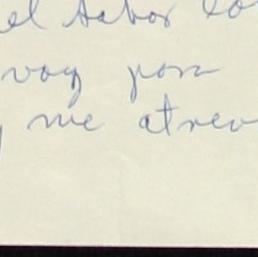 el sabor
voy por
me atrev